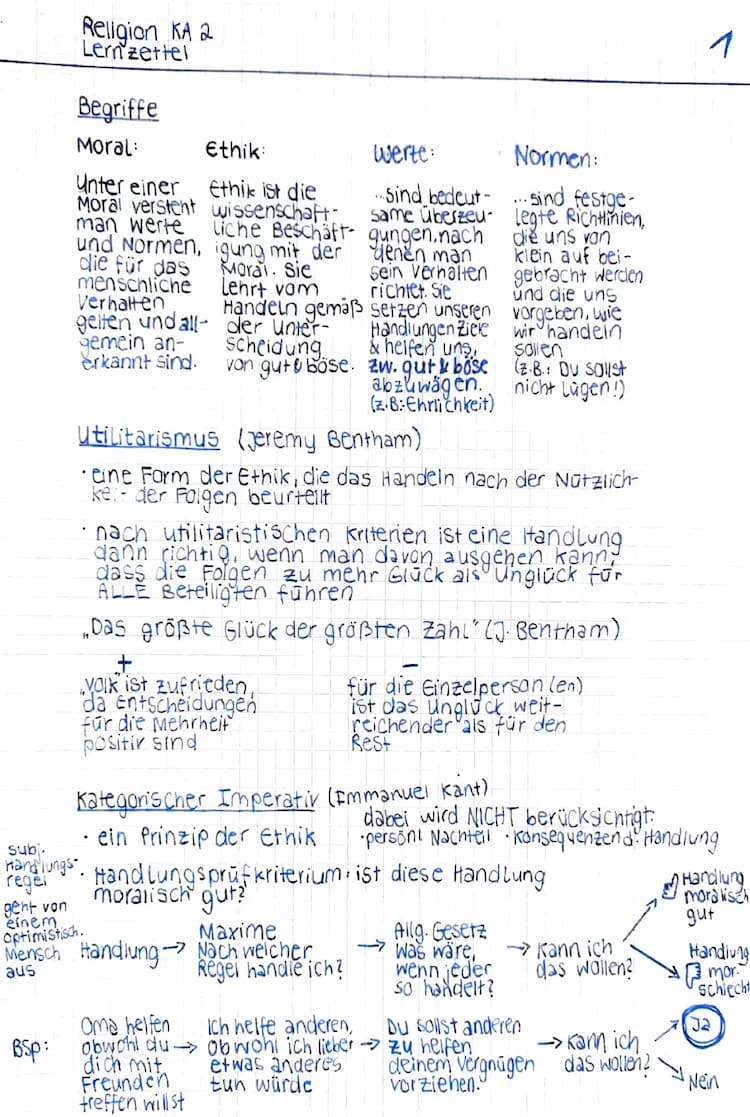 Religion KA 2
Lernzettel
1
Begriffe
Moral:
Unter einer
Moral versteht
man Werte
und Normen,
die für das
menschliche
Verhalten
gelten und all-
gemein an-
erkannt sind.
Ethik:
Ethik ist die
wissenschaft-
liche Beschäft-
igung mit der
Moral. Sie
lehrt vom
Handeln gemäß
der Unter-
scheidung
von gut & böse.
Werte:
...sind bedeut-
same Überzeu-
gungen, nach
denen man
sein Verhalten
richtet. Sie
setzen unseren
Handlungen Ziele
& helfen uns,
zw. gut & böse
abzuwägen.
(z.B.: Ehrlichkeit)
Normen:
...sind festge-
legte Richtlinien,
die uns von
klein auf bei-
gebracht werden
und die uns
vorgeben, wie
wir handeln
sollen
(z.B.: Du sollst
nicht lügen!)
Utilitarismus (Jeremy Bentham)
· eine Form der Ethik, die das Handeln nach der Nützlich-
der Folgen beurteilt
· nach utilitaristischen Kriterien ist eine Handlung
dann richtig, wenn man davon ausgehen kann,
dass die Folgen zu mehr Glück als Unglück für
ALLE Beteiligten führen
„Das größte Glück der größten Zahl" (J. Bentham)
+
„Volk" ist zufrieden,
da Entscheidungen
für die Mehrheit
positiv sind
-
für die Einzelperson(en)
ist das Unglück weit-
reichender als für den
Rest
Kategorischer Imperativ (Immanuel Kant)
dabei wird NICHT berücksichtigt:
· ein Prinzip der Ethik
· persönl Nachteil · Konsequenzen d. Handlung
· Handlungsprüfkriterium: ist diese Handlung
moralisch gut?
subj.
Handlungs-
regel
geht von
einem
optimistisch.
Mensch
aus
Handlung →
Maxime
Nach welcher
Regel handle ich?
→ Allg. Gesetz
Was wäre,
wenn jeder
so handelt?
→ Kann ich
das wollen?
Handlung
moralisch
gut
Handlung
mor.
schlecht
BSP:
Oma helfen
obwohl du →
dich mit
Freunden
treffen willst
Ich helfe anderen,
obwohl ich lieber →
etwas anderes
tun würde
Du sollst anderen
zu helfen
deinem Vergnügen
vorziehen.
→ Kann ich
das wollen?
Ja
Nein